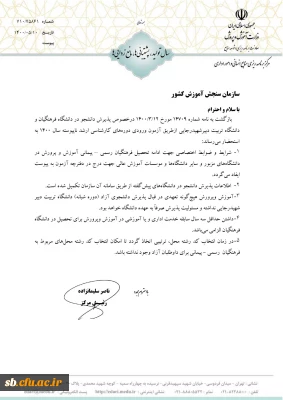 شماره ۲۱۰/۲۵۸۶۱
تاریخ ۱۴۰۰/۰۵/۱۰
پیوست
جمهوری اسلامی ایران
وزارت آموزش و پرورش
سال تولید، پشتیبانی‌ها، مانع زدایی‌ها
سازمان سنجش آموزش کشور
با سلام و احترام
بازگشت به نامه شماره ۱۴۷۰۹ مورخ ۱۴۰۰/۳/۱۲ درخصوص پذیرش دانشجو در دانشگاه فرهنگیان و
دانشگاه تربیت دبیرشهیدرجایی ازطریق آزمون ورودی دوره‌های کارشناسی ارشد ناپیوسته سال ۱۴۰۰ به
استحضار می‌رساند:
۱- شرایط و ضوابط اختصاصی جهت ادامه تحصیل فرهنگیان رسمی – پیمانی آموزش و پرورش در
دانشگاه‌های مزبور و سایر دانشگاه‌ها و موسسات آموزش عالی جهت درج در دفترچه آزمون به پیوست
ایفاد می‌گردد.
۲- اطلاعات پذیرش دانشجو در دانشگاه‌های پیش‌گفته از طریق سامانه آن سازمان تکمیل شده است.
۳-آموزش وپرورش هیچ‌گونه تعهدی در قبال پذیرش دانشجوی آزاد (دوره شبانه) دانشگاه تربیت دبیر
شهیدرجایی نداشته و مسئولیت پذیرش صرفا به عهده دانشگاه خواهد بود.
۴-داشتن حداقل سه سال سابقه خدمت اداری و یا آموزشی در آموزش وپرورش برای تحصیل در دانشگاه
فرهنگیان الزامی می‌باشد.
۵-در زمان انتخاب کد رشته محل، ترتیبی اتخاذ گردد تا امکان انتخاب کد رشته محل‌های مربوط به
فرهنگیان رسمی – پیمانی برای داوطلبان آزاد وجود نداشته باشد.
ناصر سلیمانزاده
رئیس مرکز
sb.cfu.ac.ir